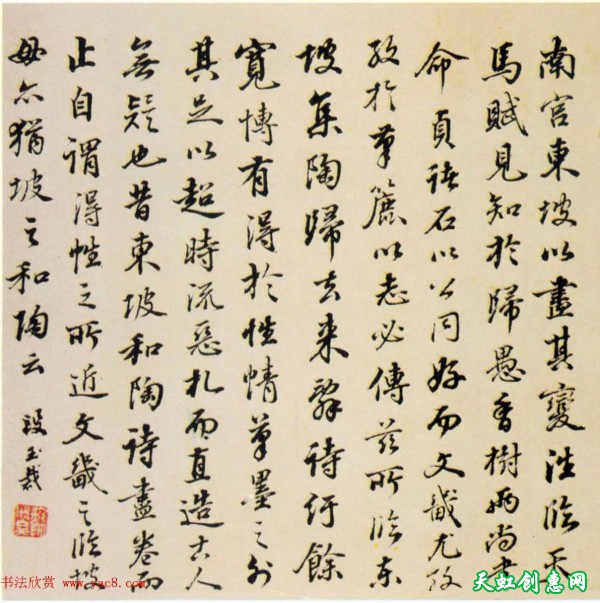 南宫東坡以盡其變往臨天
馬賦見知於歸愚香樹两尚書
命貞诸石以公同好而文畿尤
於以志必傳兹所臨東
坡集陶歸去来辭詩纡餘
寬慱有得於性情筆墨之外
其足以超時流惡札而直造古人
無疑也昔東坡和陶詩盡卷而
止自謂得性之所近文畿之臨坡
毋亦猶坡之和陶云 段玉裁
书法欣赏 www.yac8.com
天虹创意网